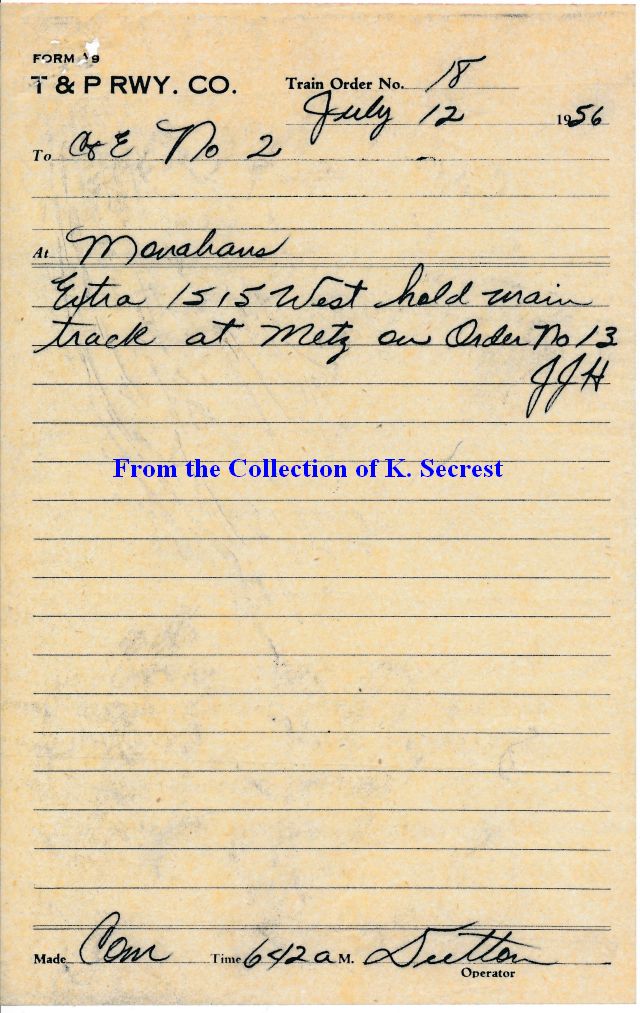 FORM 19
T & P RWY. CO.
Train Order No. 18
July 12 1956
To C&E No 2
At Monahans
Extra 1515 West hold main
track at Metz on Order No 13
JJH
From the Collection of K. Secrest
Made Com Time 642 a M. Sutton
Operator